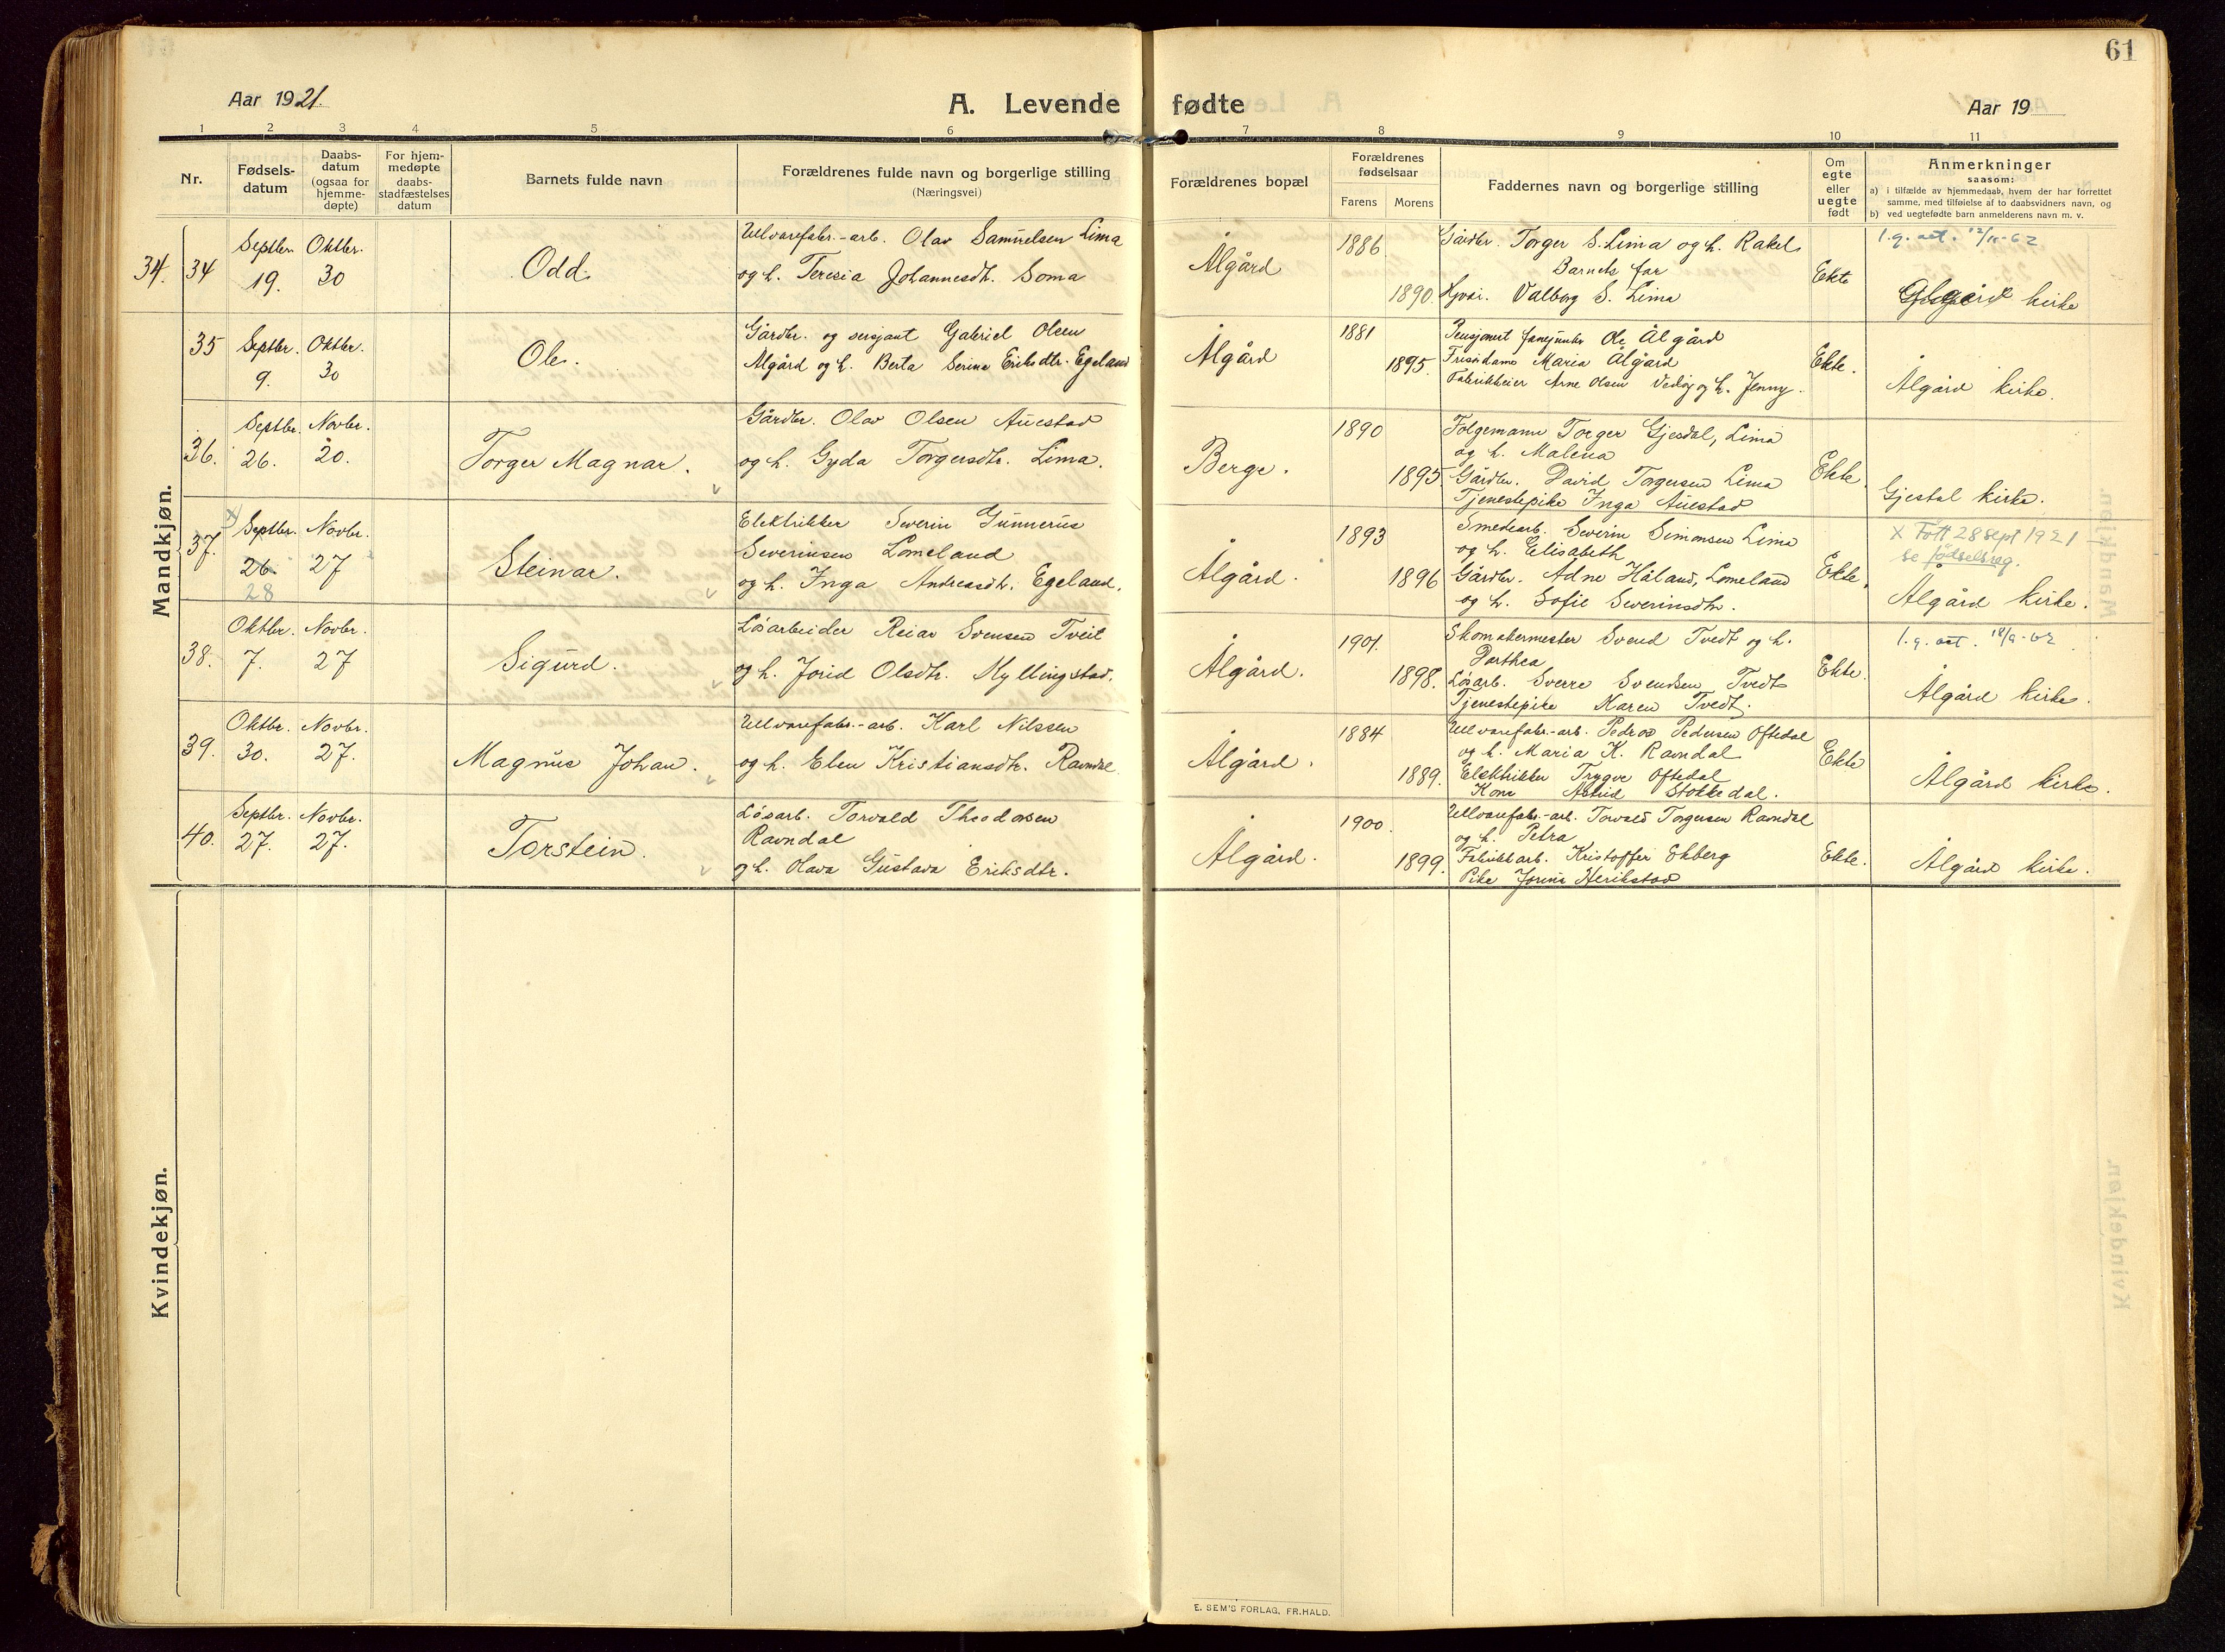 61
Aar 1921.
A. Levende fødte
Aar 19
1 2 3 4 5 6 7 8 9 10 11
Nr.
Fødsels-
datum
Daabs-
datum
(ogsaa for
hjemme-
døpte)
For hjem-
medøpte
daabs-
stadfæstelses
datum
Barnets fulde navn
Forældrenes fulde navn og borgerlige stilling
(Næringsvei)
Forældrenes bopæl
Forældrenes
fødselsaar
Farens Morens
Faddernes navn og borgerlige stilling
Om
egte
eller
uegte
født
Anmerkninger
saasom:
a) i tilfælde av hjemmedaab, hvem der har forrettet
samme, med tilføielse af to daabsvidners navn, og
b) ved uegtefødte barn anmelderens navn m. v.
Mandkjøn.
34. 34
Septbr. Oktbr.
19. 30
Odd.
Uldvarefabr.-arb. Olav Samuelsen Lima
og h. Teresia Johannesdtr. Soma
Ålgård
1886
1890.
Gårdbr. Torger S. Lima og h. Rakel
Barnets far
Valborg S. Lima
Ekte
l.g. att. 12/11-62
Ålgård kirke
35
Septbr. Oktbr.
9. 30
Ole.
Gårdbr. og sersjant Gabriel Olsen
Ålgård og h. Berta Serina Eriksdtr. Egeland
Ålgård
1881
1895.
Pensjonert fanejunker Ole Ålgård
Maria Ålgård
Fabrikkeier Arne Olsen og h. Jenny.
Ekte.
Ålgård kirke.
36.
Septbr. Novbr.
26. 20.
Torger Magnar.
Gårdbr. Olav Olsen Auestad
og h. Gyda Torgersdtr. Lima.
Berge.
1890
1895
Følgemann Torger Gjesdal, Lima
og h. Malena
Gårdbr. David Torgersen Lima
Tjenestepike Inga Auestad
Ekte
Gjestal kirke.
37.
x)
Septbr. Novbr.
26. 27
28
Steinar.
Elektriker Severin Gunnerius
Severinsen Lomeland
og h. Inga Andreasdtr. Egeland.
Ålgård.
1893
1896
Smedarb. Severin Simonsen Lima
og h. Elisabeth
Gårdbr. Adne Håland, Lomeland
og h. Sofie Severinsdtr.
Ekte.
x Født 28 sept 1921
se fødselsreg.
Ålgård kirke.
38.
Oktbr. Novbr.
7. 27
Sigurd.
Løsarbeider Reiar Svensen Tveit
og h. Jorid Olsdtr. Kyllingstad.
Ålgård.
1901.
1898.
Skomakermester Svend Tvedt og h.
Dorthea
Løsarb. Sverre Svendsen Tvedt
Tjenestepike Karen Tvedt.
Ekte.
l.g. att. 18/9-62
Ålgård kirke.
39.
Oktbr. Novbr.
30. 27.
Magnus Johan.
Uldvarefabr.-arb. Karl Nilssen
og h. Elen Kristiansdtr. Ravndal
Ålgård.
1884
1889.
Uldvarefabr.-arb. Peder Pedersen Oftedal
og h. Maria K. Ravndal
Elektriker Trygve Oftedal
Kone Astrid Stokkedal.
Ekte
Ålgård kirke.
40.
Septbr. Novbr.
27. 27.
Torstein.
Løsarb. Torvald Theodorsen
Ravndal
og h. Olava Gustava Eriksdtr.
Ålgård.
1900.
1899.
Uldvarefabr.-arb. Torvald Torgersen Ravndal
og h. Petra
Fabrikkarb. Kristoffer Ekberg
Pike Jorine Herikstad
Ekte.
Ålgård kirke.
Kvindekjøn.
E. SEM'S FORLAG, FR.HALD.